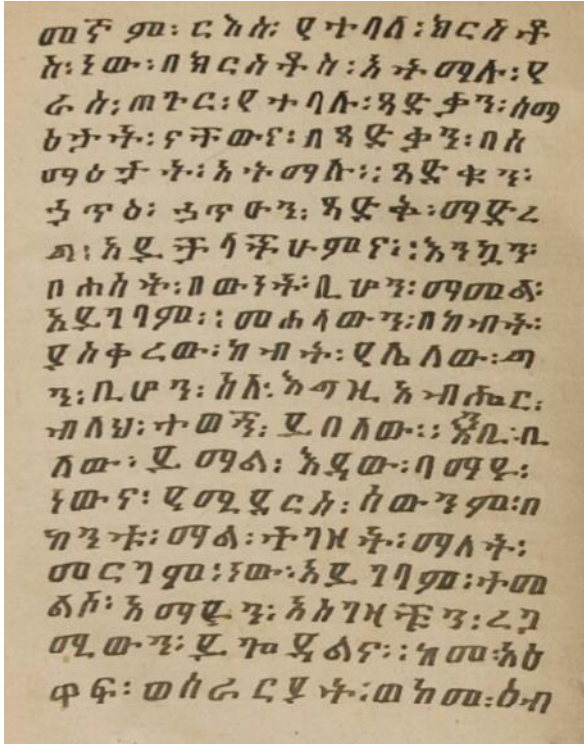 መኛ ም፡ ርእስ፡ የተባለ፡ክርስቶ
ስ፡ነው፡በክርስቶስ፡አትማሉ፡የ
ራስ፡ጠጉር፡የተባሉ፡ጻድቃን፡ሰማ
ዕታት፡ናቸውና፡በጻድቃን፡በሰ
ማዕታት፡አትማሉ፡፡ጻድቁን፡
ኃጥዕ፡ኃጥሁን፡ጻድቅ፡ማድረ
ግ፡አይቻላችሁምና፡፡እንኳን
በሐሰት፡በውነት፡ቢሆን፡ማመል፡
አይገባም፡፡መሐላውን፡በከብት፡
ያስቀረው፡ከብት፡የሌለው፡ጣ
ን፡ቢሆን፡ስለ፡እግዚአብሔር፡
ብለህ፡ተወኝ፡ይበለው፡፡እቢ፡ቢ
ለው፡ይማል፡እዳው፡ባማዩ፡
ነውና፡የሚያርስ፡ሰውንም፡በ
ከንቱ፡ማል፡ተገዘት፡ማለት፡
መርገም፡ነው፡አይገባም፡ተመ
ልሶ፡እማዩን፡አስገዛቹን፡ረጋ
ሚውን፡ይጐዳልና፡፡ከመ፡አዕ
ዋፍ፡ወሰራርያት፡ወከመ፡ዕብ